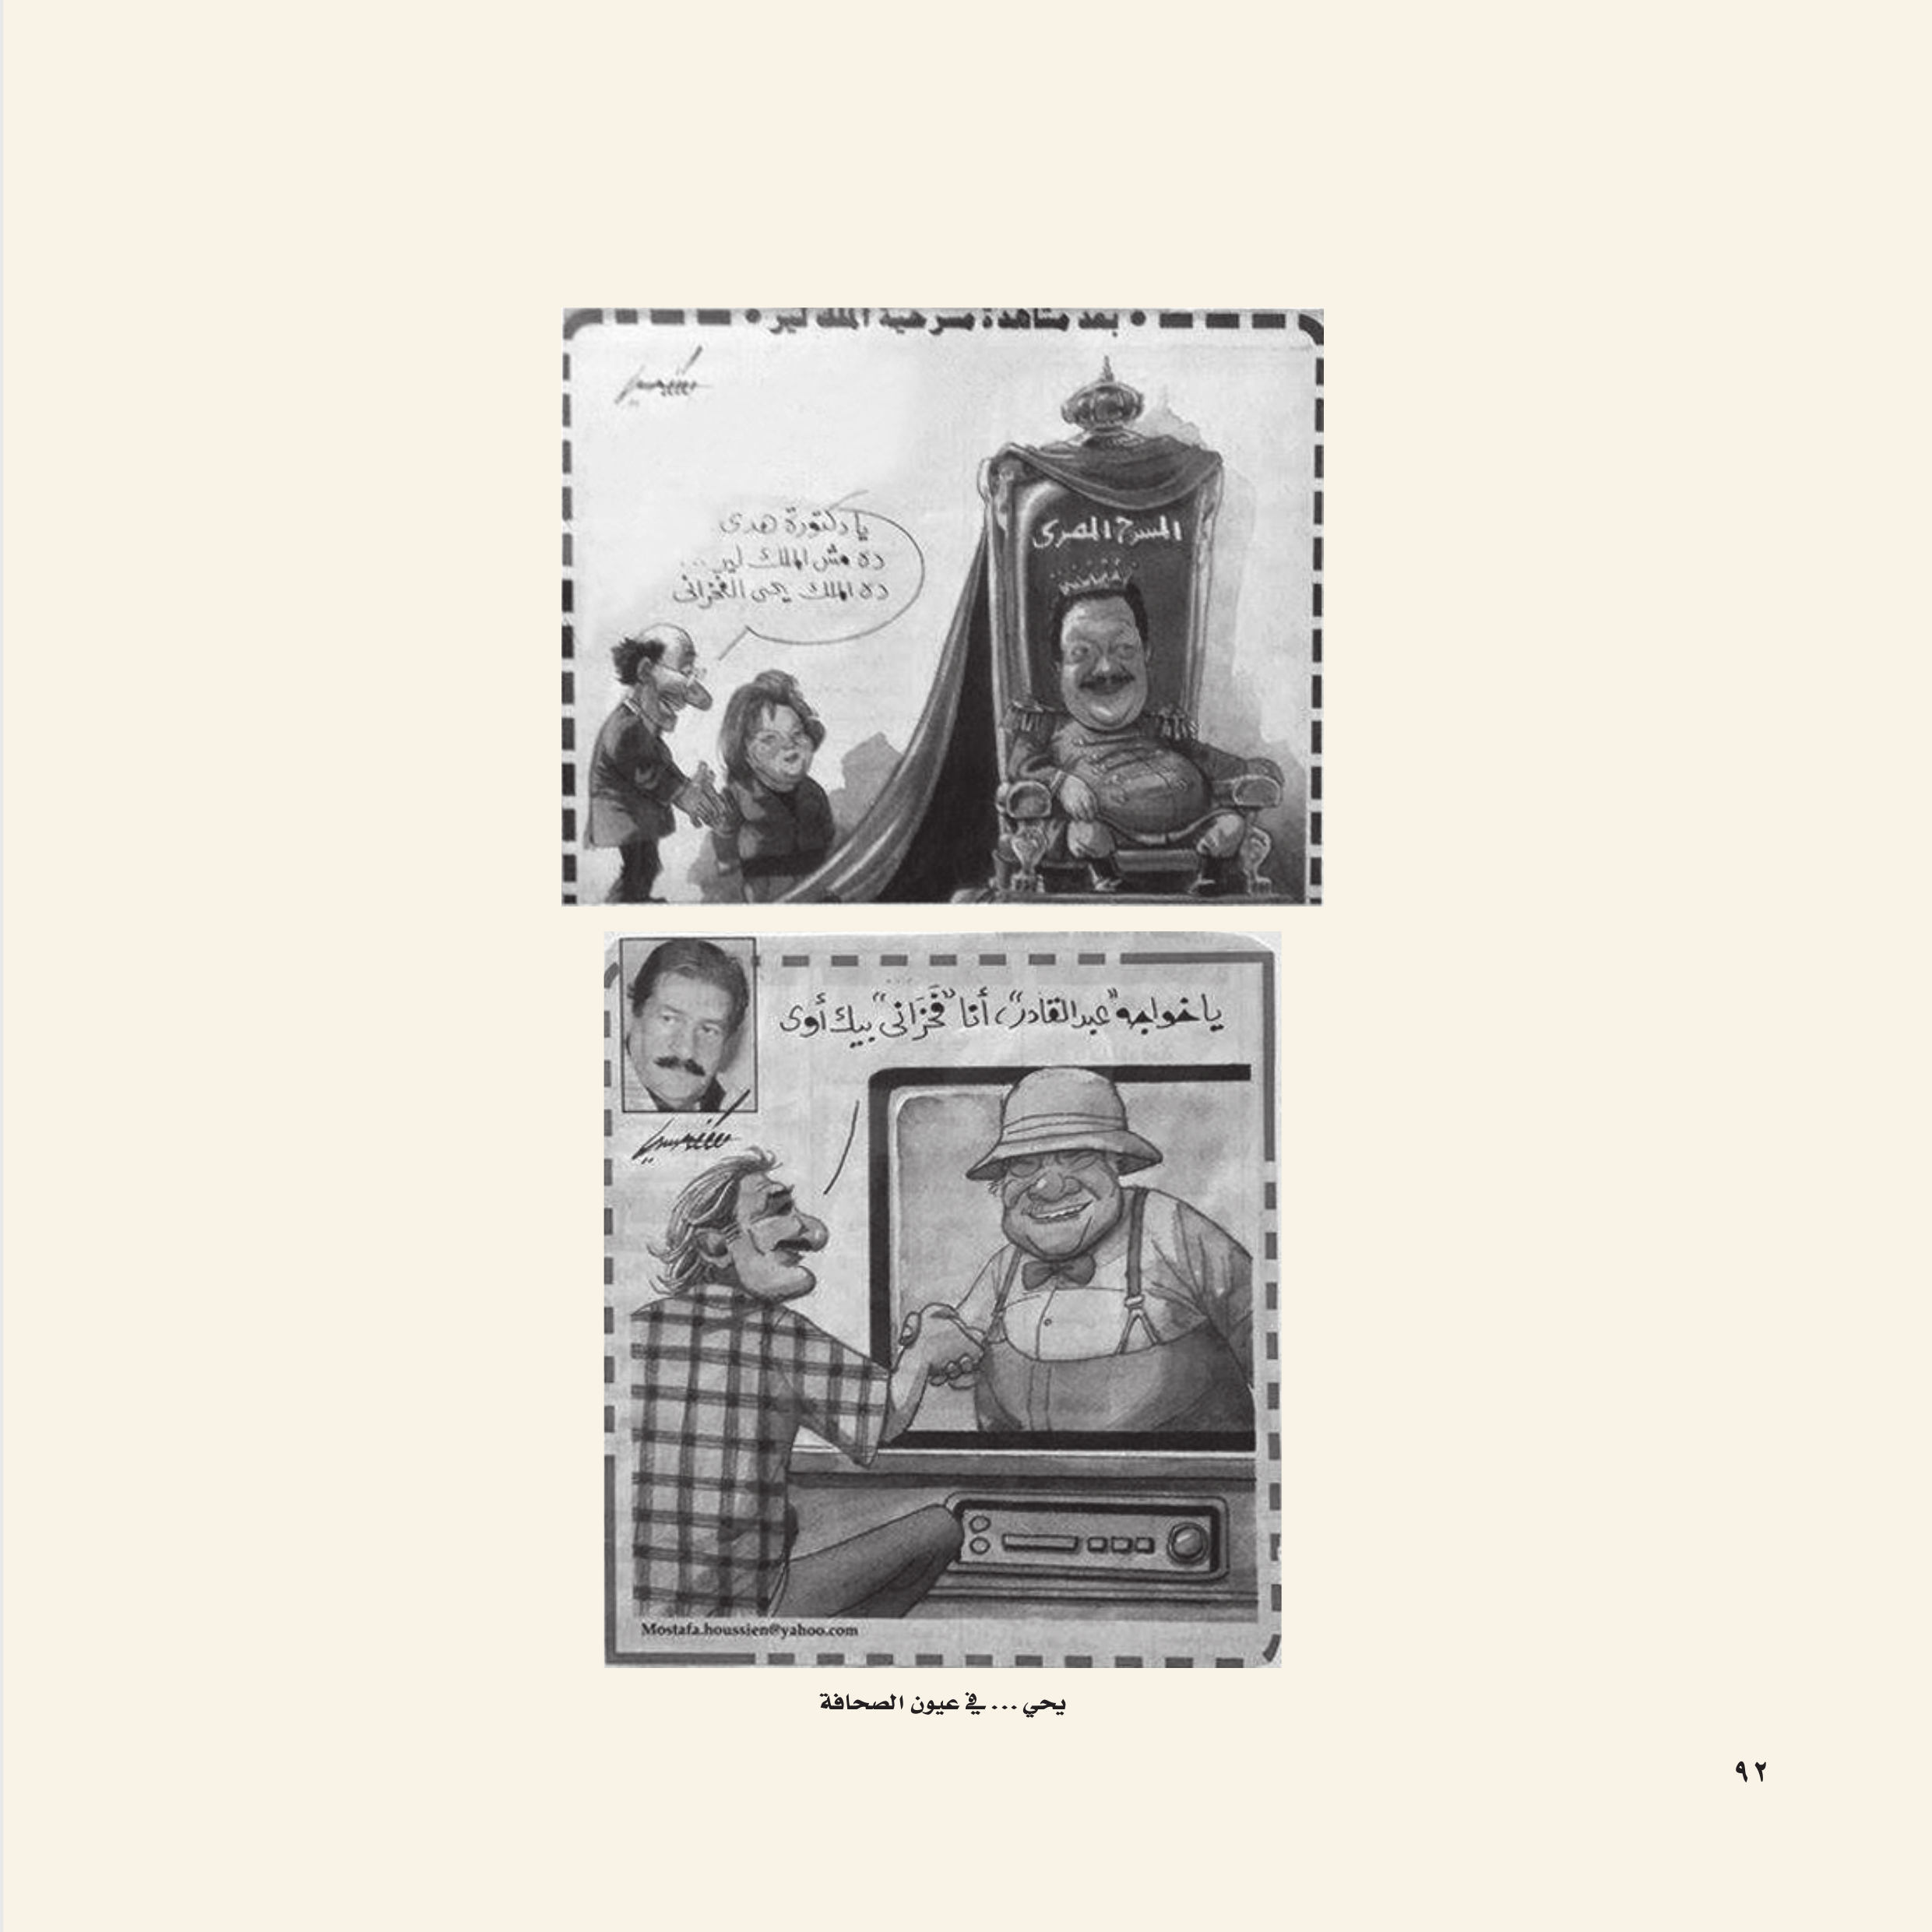 • بعد مشاهدة مسرحية الملك لير •
يا دكتورة هدى
ده مش الملك لير...
ده الملك يحى الفخرانى
المسرح المصرى
يا خواجه "عبد القادر"، أنا "فَخْرَانى" بيك أوى
Mostafa.houssien@yahoo.com
يحي ... في عيون الصحافة
٩٢